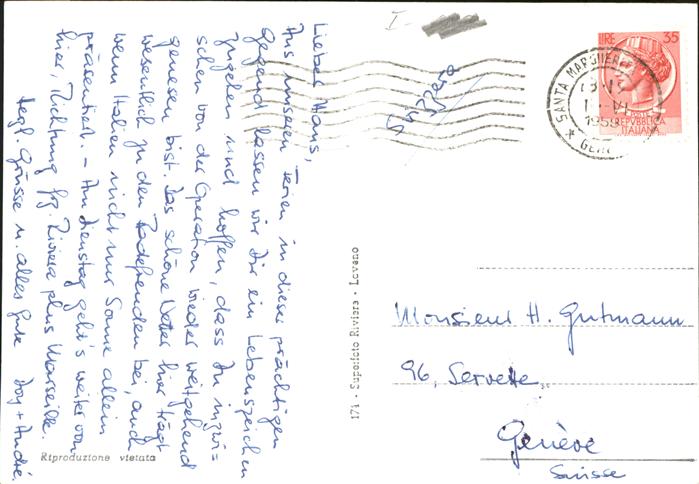 Lieber Hans,
Aus unseren Ferien in dieser prächtigen
Gegend lassen wir Dir ein Lebenszeichen
zugehen und hoffen, dass Du inzwi=
schen von der Operation wieder weitgehend
genesen bist. Das schöne Wetter hier trägt
wesentlich zu den Badefreuden bei, auch
wenn Italien nicht nur Sonne allein
präsentiert. – Am Dienstag geht's weiter von
hier, Richtung frz. Riviera plus Marseille.
Hzgl. Grüsse u. alles Gute Joy + André
Riproduzione vietata
171 - Superfoto Riviera - Lovano
I -
Svizzera
LIRE 35
REPVBBLICA
ITALIANA
SANTA MARGHER
1958
* GEN
Monsieur H. Gutmann
96, Servette
Genève
Suisse